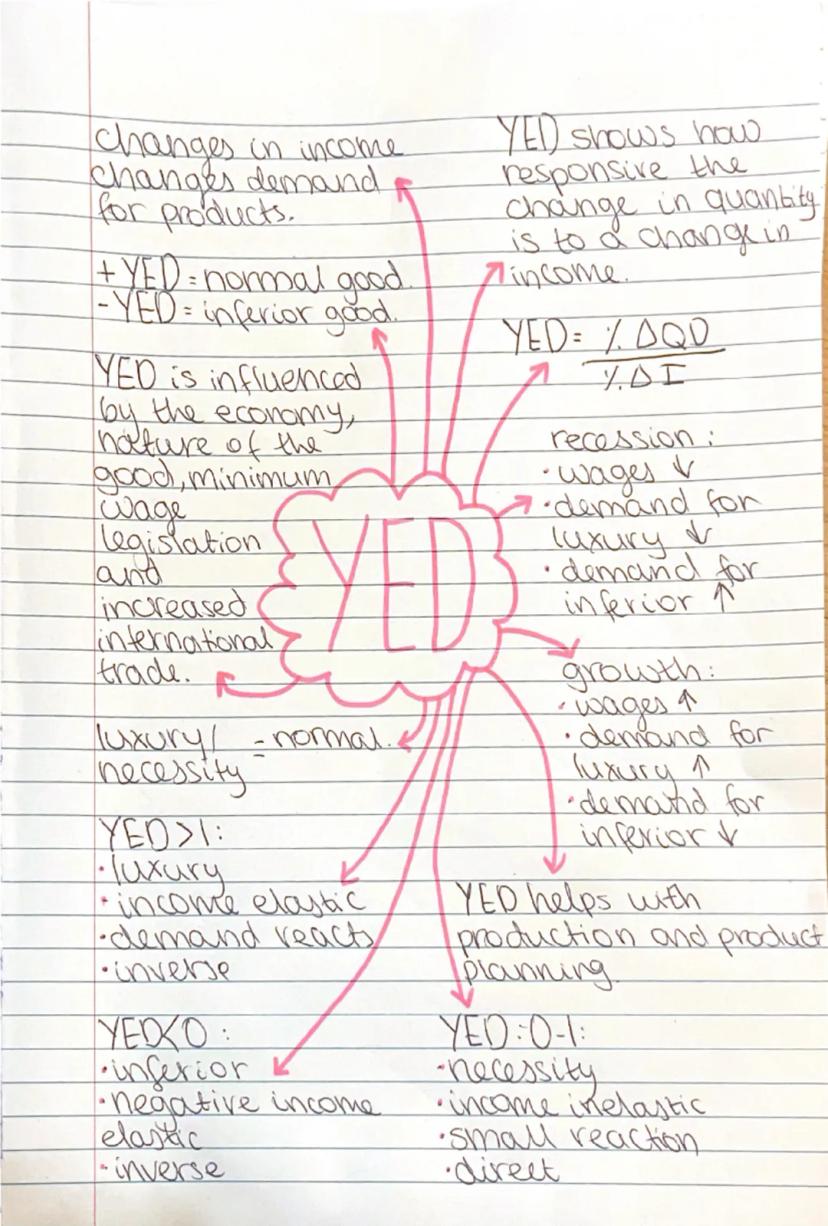 changes in income
changes demand
for products.
YED shows how
responsive the
change in quantity
is to a change in
income.
+YED = normal good.
-YED = inferior good.
YED = % ΔQD
% Δ I
YED is influenced
by the economy,
nature of the
good, minimum
wage
legislation
and
increased
international
trade.
YED
recession:
• wages ↓
• demand for
luxury ↓
• demand for
inferior ↑
growth:
• wages ↑
• demand for
luxury ↑
• demand for
inferior ↓
luxury/ = normal.
necessity
YED>1:
• luxury
• income elastic
• demand reacts
• inverse
YED helps with
production and product
planning.
YED<0:
• inferior
• negative income
elastic
• inverse
YED:0-1:
• necessity
• income inelastic
• small reaction
• direct